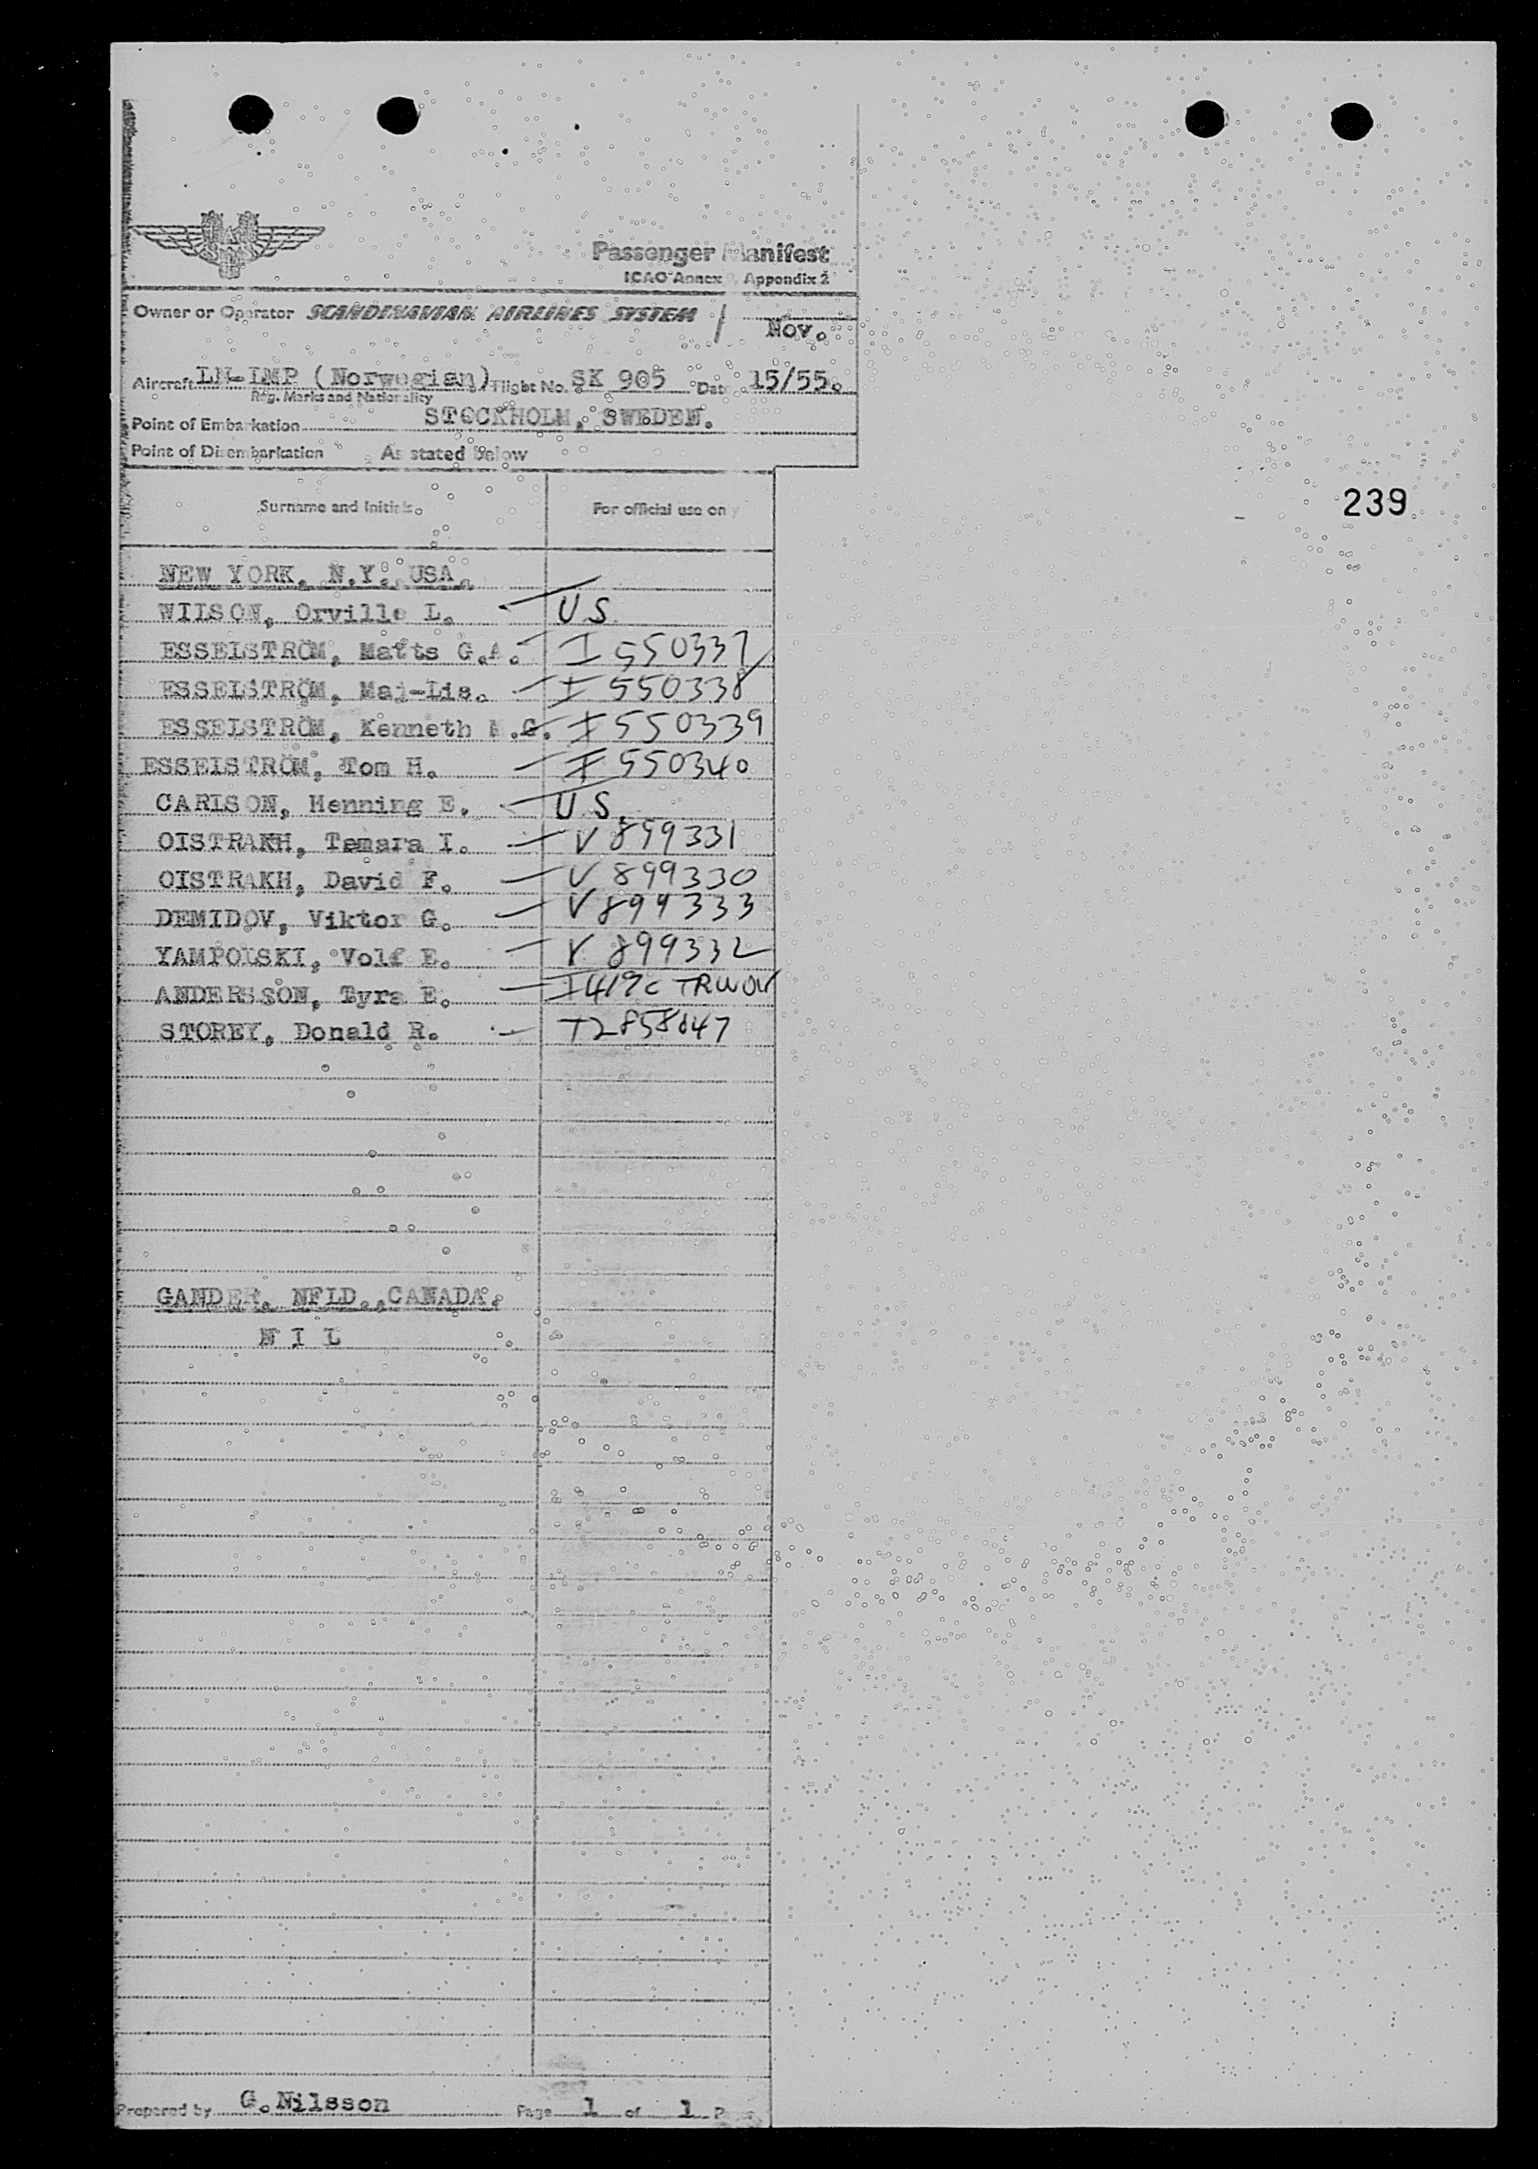 SAS
Passenger Manifest
ICAO Annex 9, Appendix 2
Owner or Operator SCANDINAVIAN AIRLINES SYSTEM
Nov.
Aircraft LN-LMP (Norwegian) Flight No. SK 905 Date 15/55.
Reg. Marks and Nationality
Point of Embarkation STOCKHOLM, SWEDEN.
Point of Disembarkation As stated below
Surname and Initials. For official use only
239
NEW YORK, N.Y. USA.
WILSON, Orville L. U S.
ESSELSTRÖM, Matts G.A. I 550337
ESSELSTRÖM, Maj-Lis. I 550338
ESSELSTRÖM, Kenneth M.G. I 550339
ESSELSTRÖM, Tom H. I 550340
CARLSON, Henning E. U S.
OISTRAKH, Tamara I. V 899331
OISTRAKH, David F. V 899330
DEMIDOV, Viktor G. V 899333
YAMPOLSKI, Volf E. V 899332
ANDERSSON, Tyra E. I 419c TRWOV
STOREY, Donald R. T2858047
GANDER, NFLD., CANADA.
N I L
Prepared by G.Nilsson Page 1 of 1